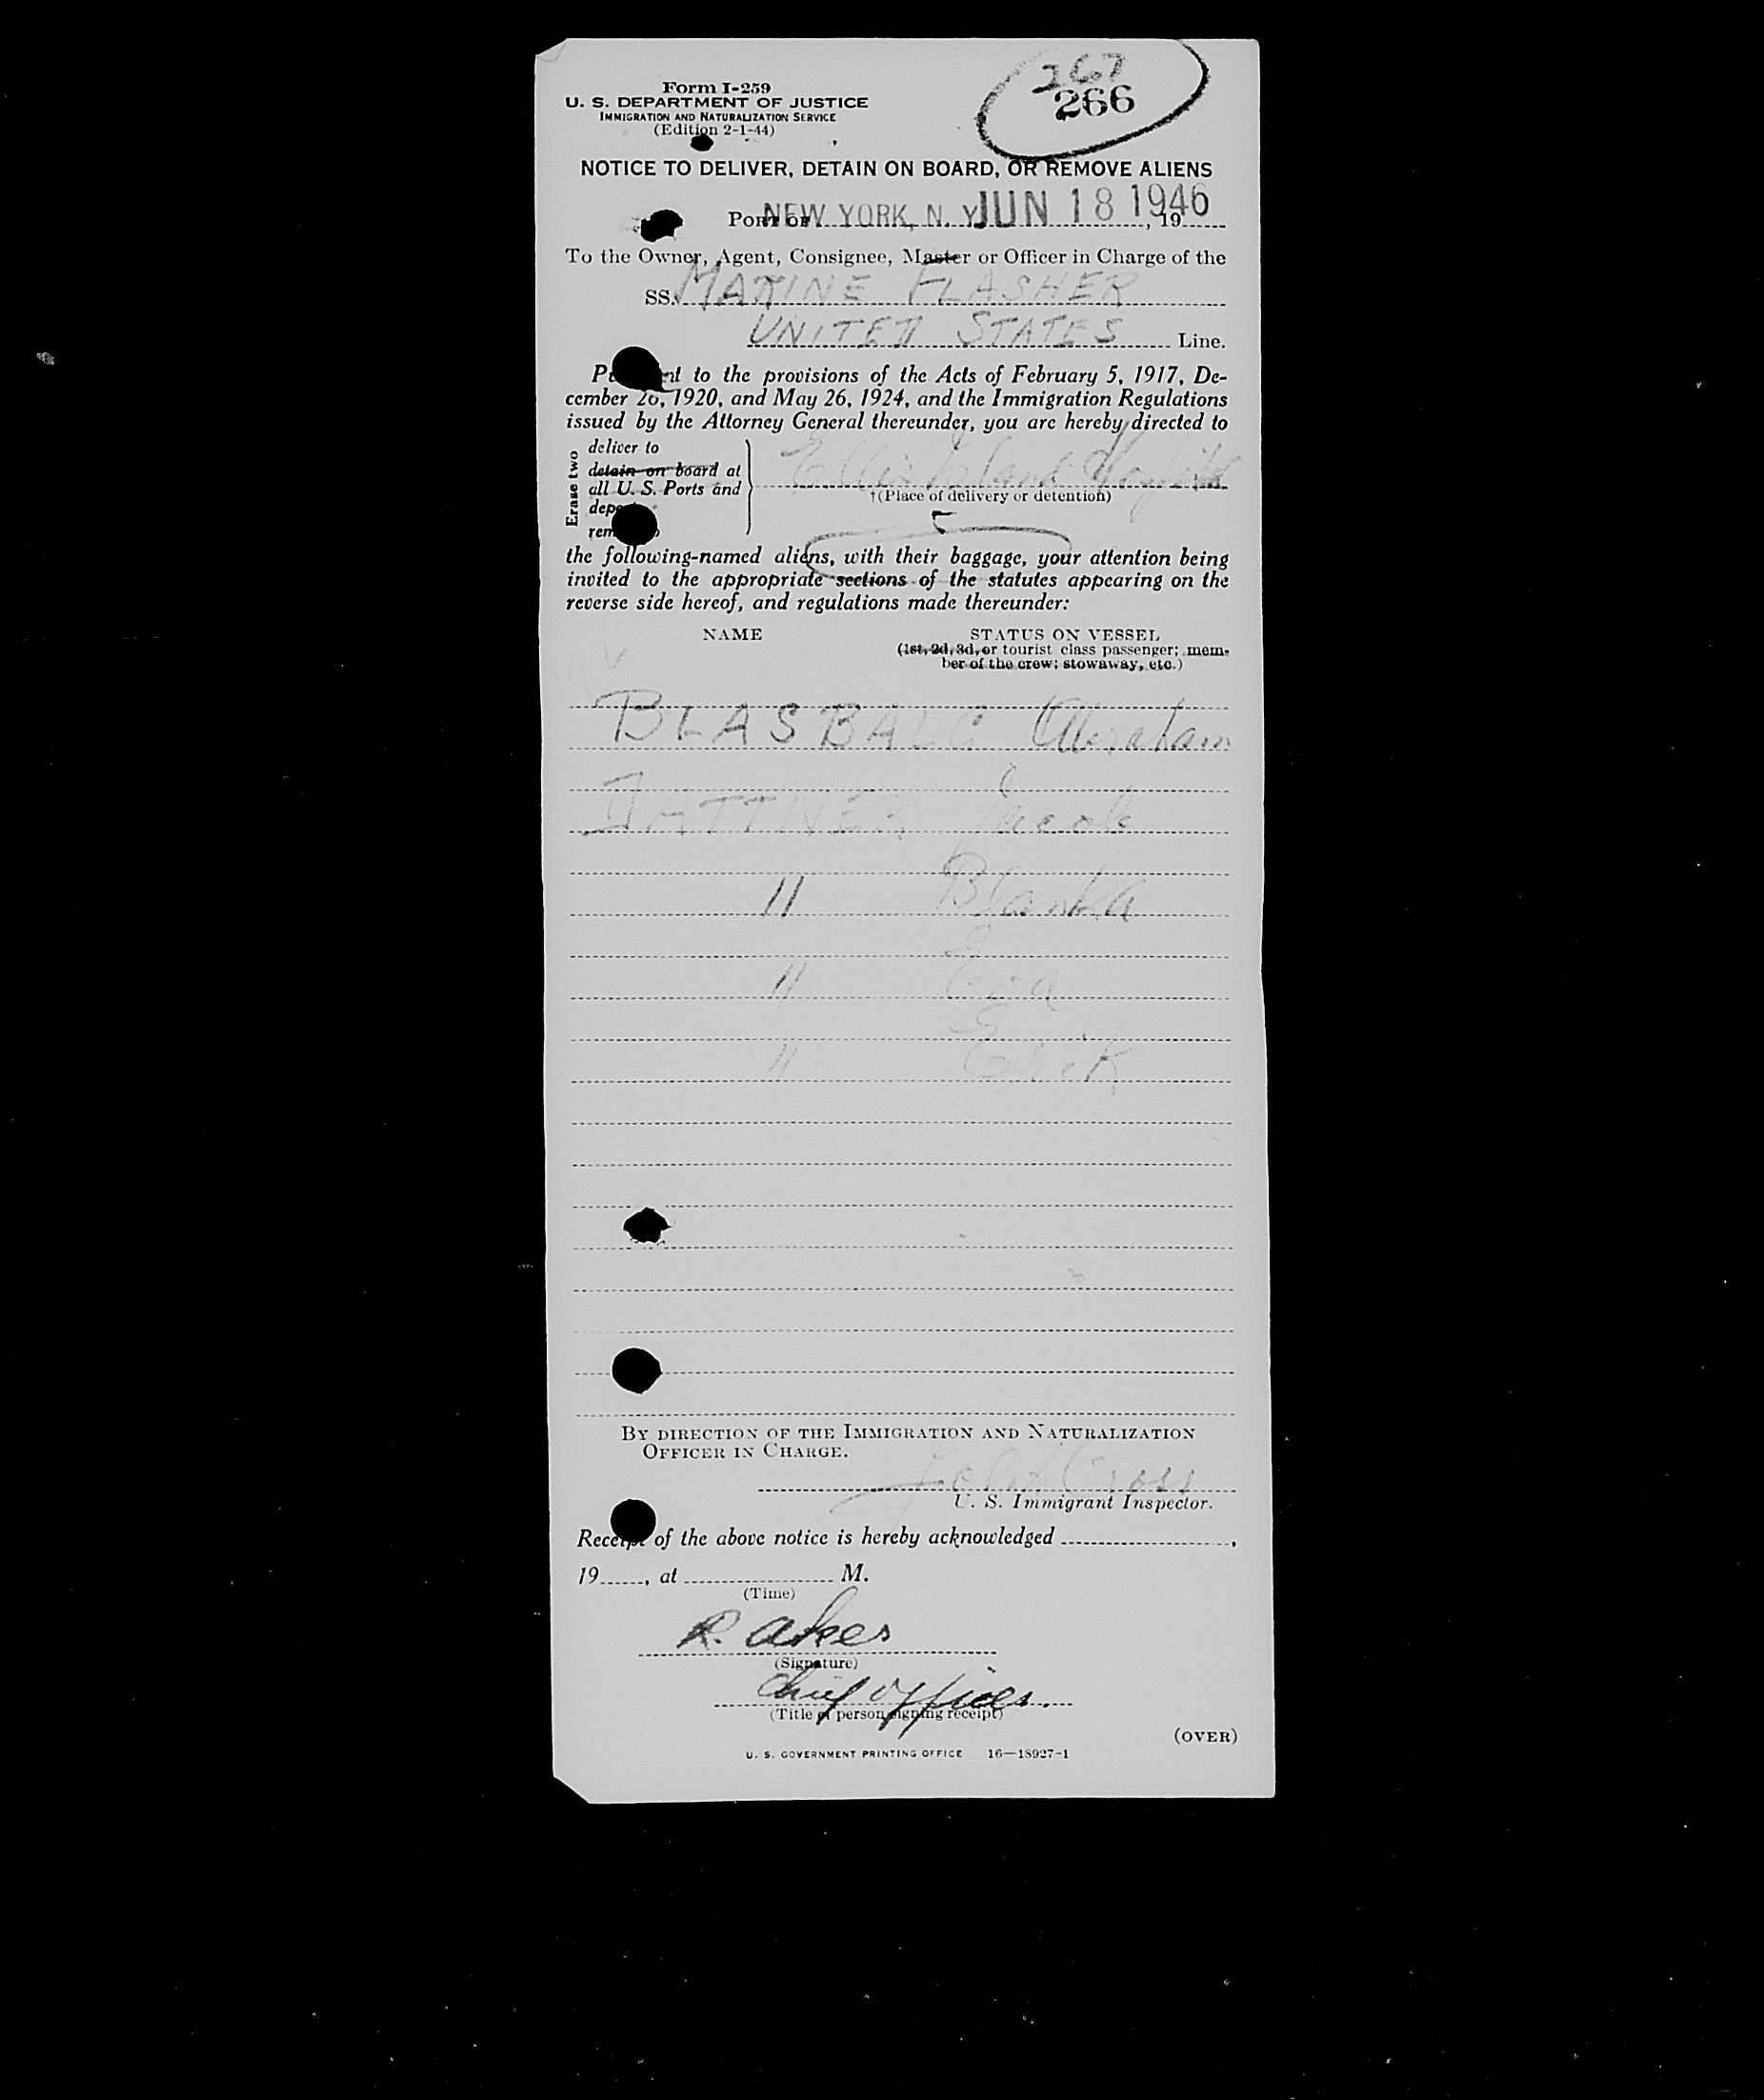 Form I-259
U. S. DEPARTMENT OF JUSTICE
IMMIGRATION AND NATURALIZATION SERVICE
(Edition 2-1-44)
267
266
NOTICE TO DELIVER, DETAIN ON BOARD, OR REMOVE ALIENS
PORT OF NEW YORK, N. Y. JUN 18 1946, 19
To the Owner, Agent, Consignee, Master or Officer in Charge of the
SS. MARINE FLASHER
UNITED STATES Line.
to the provisions of the Acts of February 5, 1917, De-
cember 26, 1920, and May 26, 1924, and the Immigration Regulations
issued by the Attorney General thereunder, you are hereby directed to
Erase two
deliver to
detain on board at
all U. S. Ports and
Ellis Island Hospital
†(Place of delivery or detention)
5
the following-named aliens, with their baggage, your attention being
invited to the appropriate sections of the statutes appearing on the
reverse side hereof, and regulations made thereunder:
NAME STATUS ON VESSEL
(1st, 2d, 3d, or tourist class passenger; mem-
ber of the crew; stowaway, etc.)
BLASBALG Abraham
DATTNER Jacob
" Blanka
" Eva
" Erik
BY DIRECTION OF THE IMMIGRATION AND NATURALIZATION
OFFICER IN CHARGE.
U. S. Immigrant Inspector.
Receipt of the above notice is hereby acknowledged ,
19 , at M.
(Time)
R. Akes
(Signature)
Chief Officer.
(Title of person signing receipt)
(OVER)
U. S. GOVERNMENT PRINTING OFFICE 16—18927-1